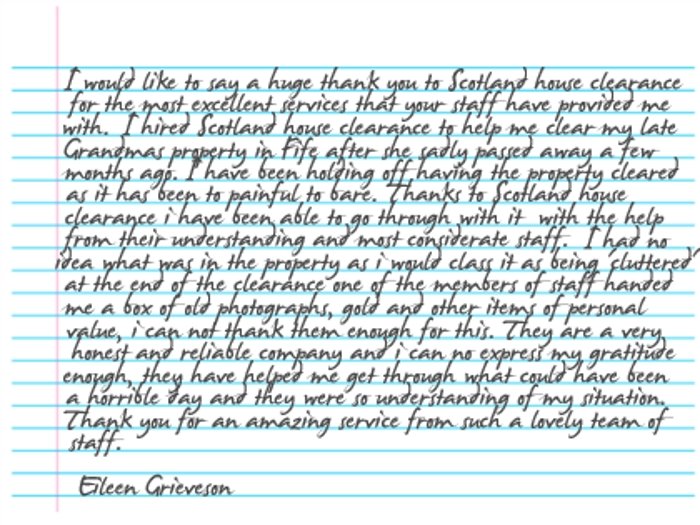 I would like to say a huge thank you to Scotland house clearance
for the most excellent services that your staff have provided me
with. I hired Scotland house clearance to help me clear my late
Grandmas property in Fife after she sadly passed away a few
months ago. I have been holding off having the property cleared
as it has been to painful to bare. Thanks to Scotland house
clearance i have been able to go through with it with the help
from their understanding and most considerate staff. I had no
idea what was in the property as i would class it as being 'cluttered'
at the end of the clearance one of the members of staff handed
me a box of old photographs, gold and other items of personal
value, i can not thank them enough for this. They are a very
honest and reliable company and i can no express my gratitude
enough, they have helped me get through what could have been
a horrible day and they were so understanding of my situation.
Thank you for an amazing service from such a lovely team of
staff.
Eileen Grieveson